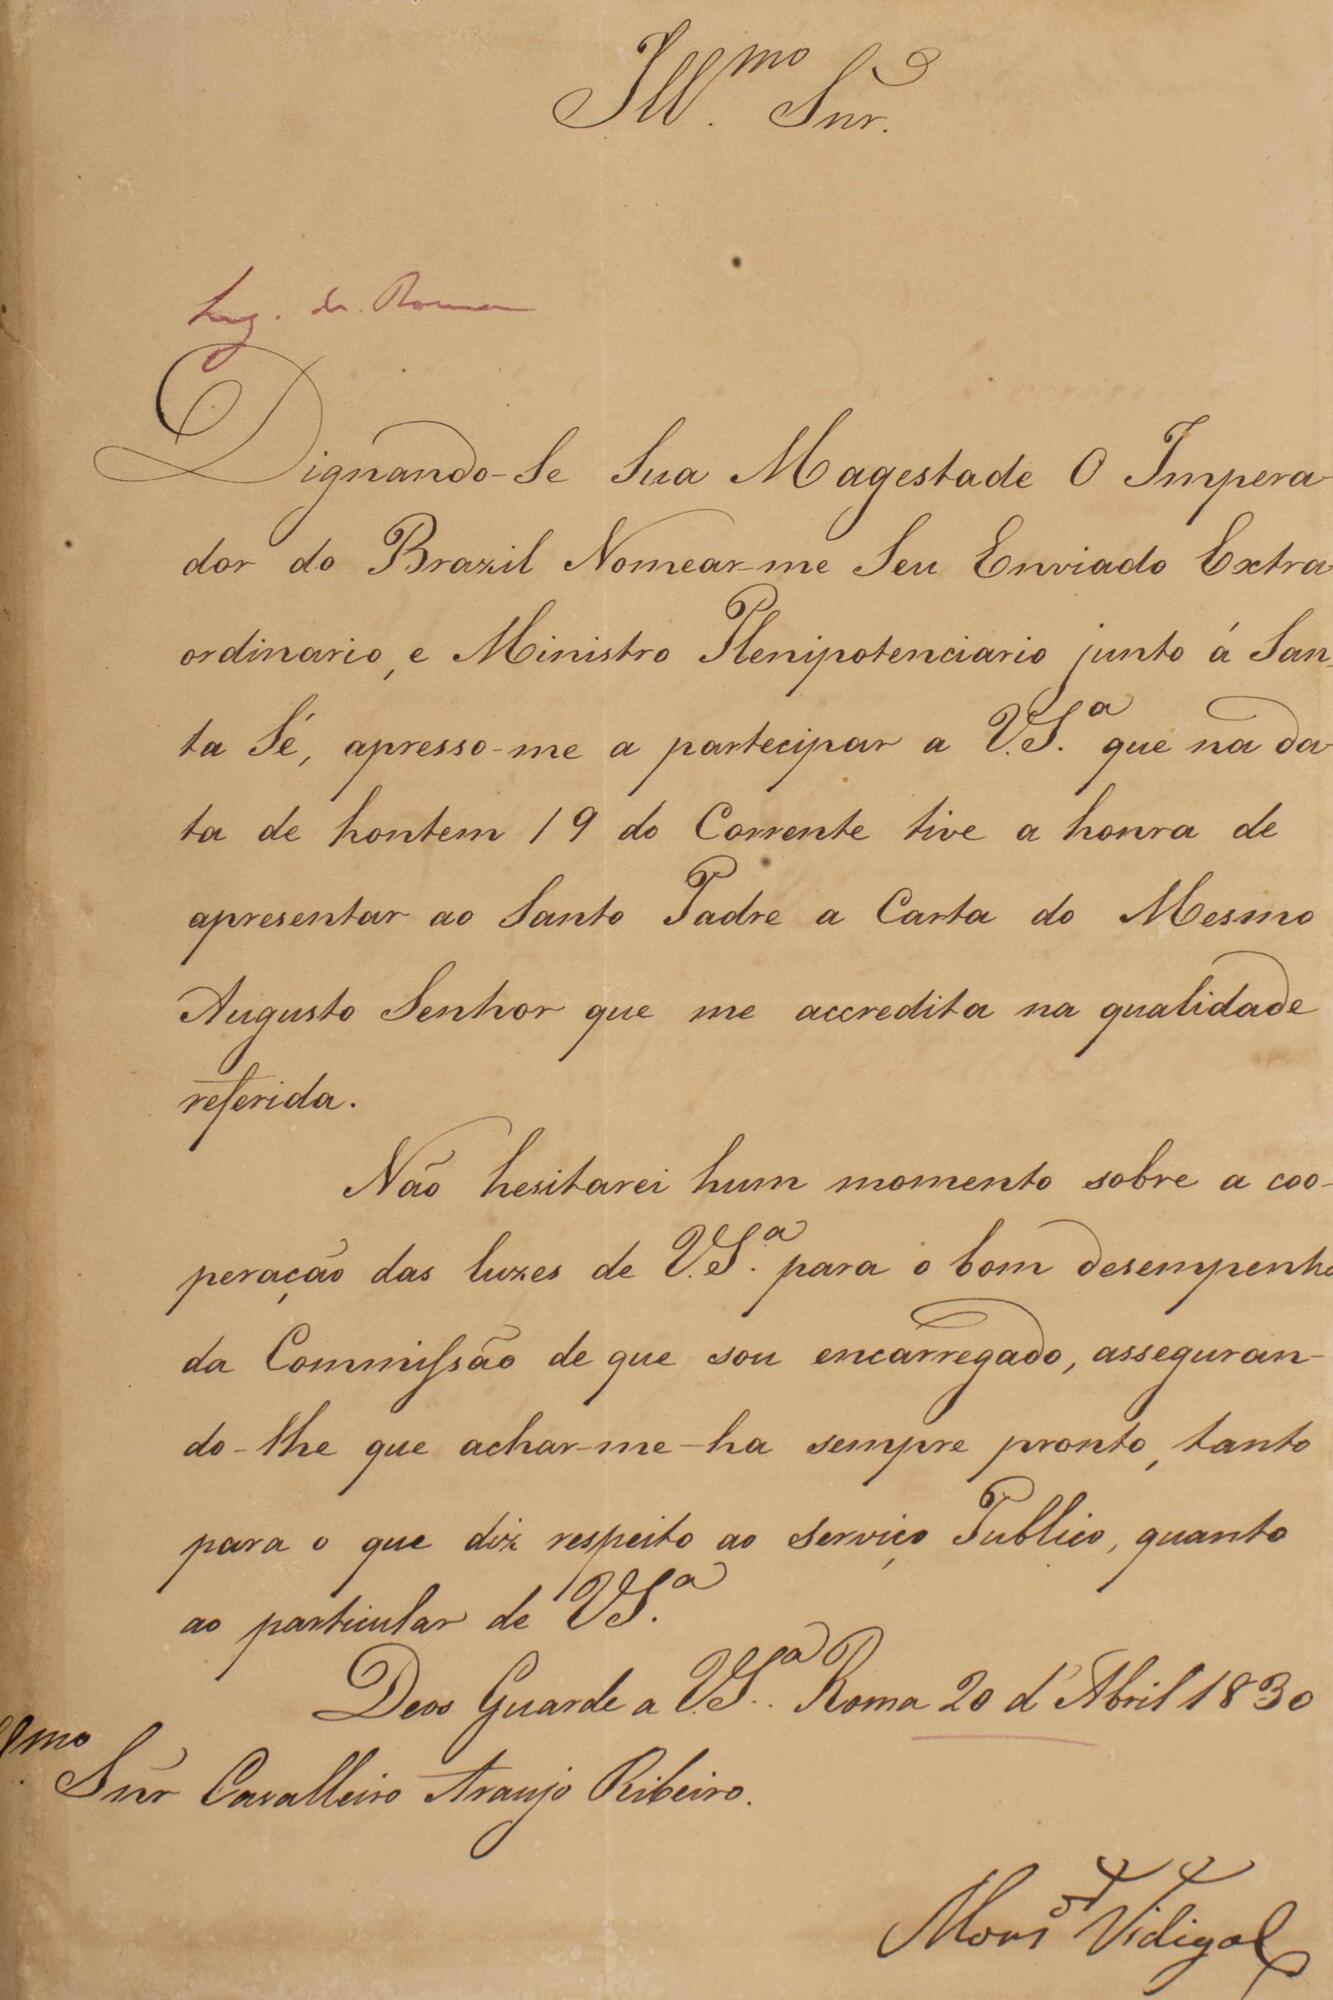 Ill.mo Snr.
Leg. de Roma
Dignando-Se Sua Magestade O Impera-
dor do Brazil Nomear-me Seu Enviado Extra
ordinario, e Ministro Plenipotenciario junto á San-
ta Sé, apresso-me a partecipar a V.S.a que na da-
ta de hontem 19 do Corrente tive a honra de
apresentar ao Santo Padre a Carta do Mesmo
Augusto Senhor que me accredita na qualidade
referida.
Não hesitarei hum momento sobre a coo-
peração das luzes de V.S.a para o bom desempenho
da Commissão de que sou encarregado, asseguran-
do-lhe que achar-me-ha sempre pronto, tanto
para o que diz respeito ao serviço Publico, quanto
ao particular de VS.a
Deos Guarde a V.S.a Roma 20 d'Abril 1830
Illmo.
Snr Cavalleiro Araujo Ribeiro.
Monsor Vidigal